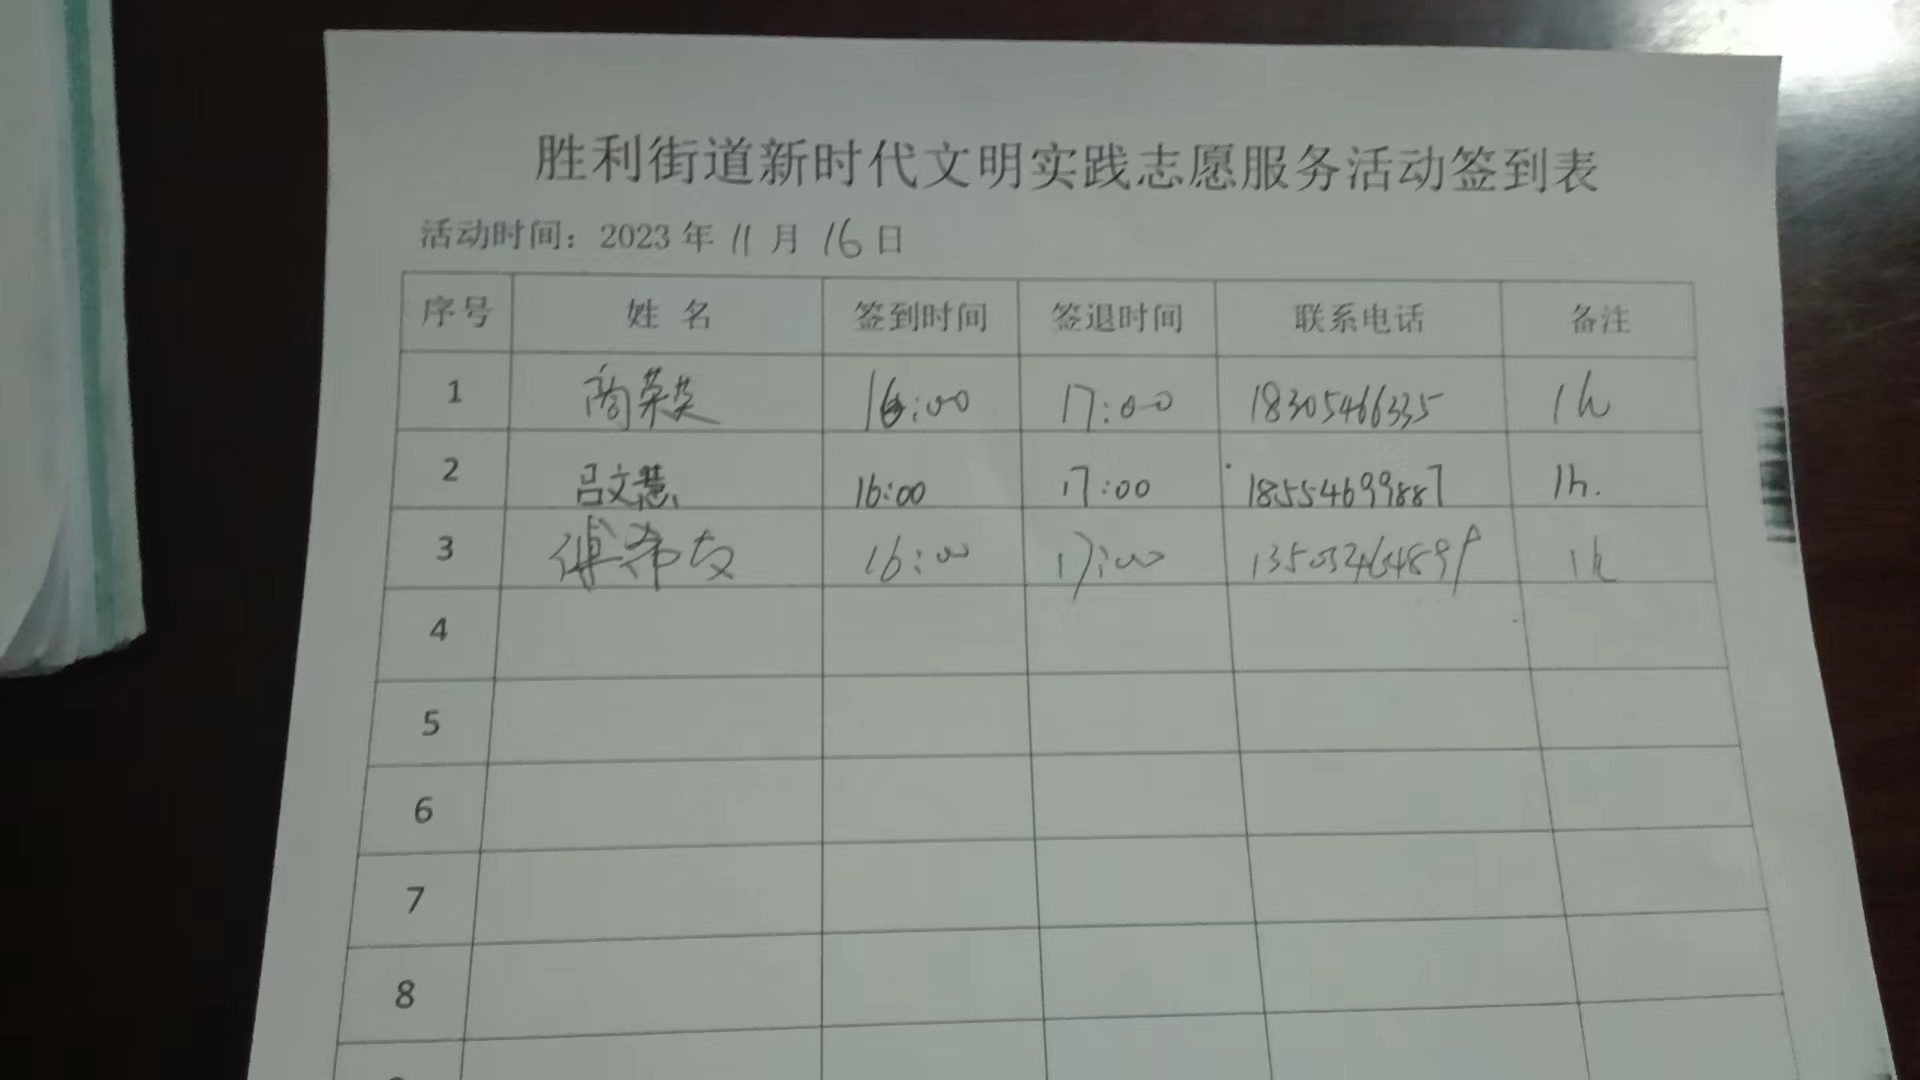 胜利街道新时代文明实践志愿服务活动签到表
活动时间：2023 年 11 月 16 日
序号 姓 名 签到时间 签退时间 联系电话 备注
1 商荣英 16:00 17:00 18305466335 1h
2 吕文慧 16:00 17:00 18554699887 1h.
3 傅希友 16:00 17:00 1h
4
5
6
7
8